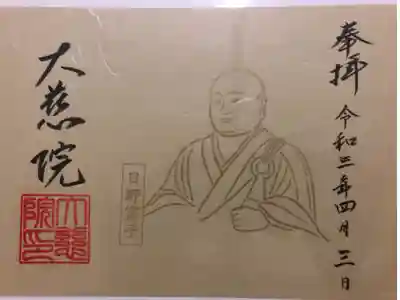 奉拝 令和三年四月三日
日野富子
大慈院
大慈
院印